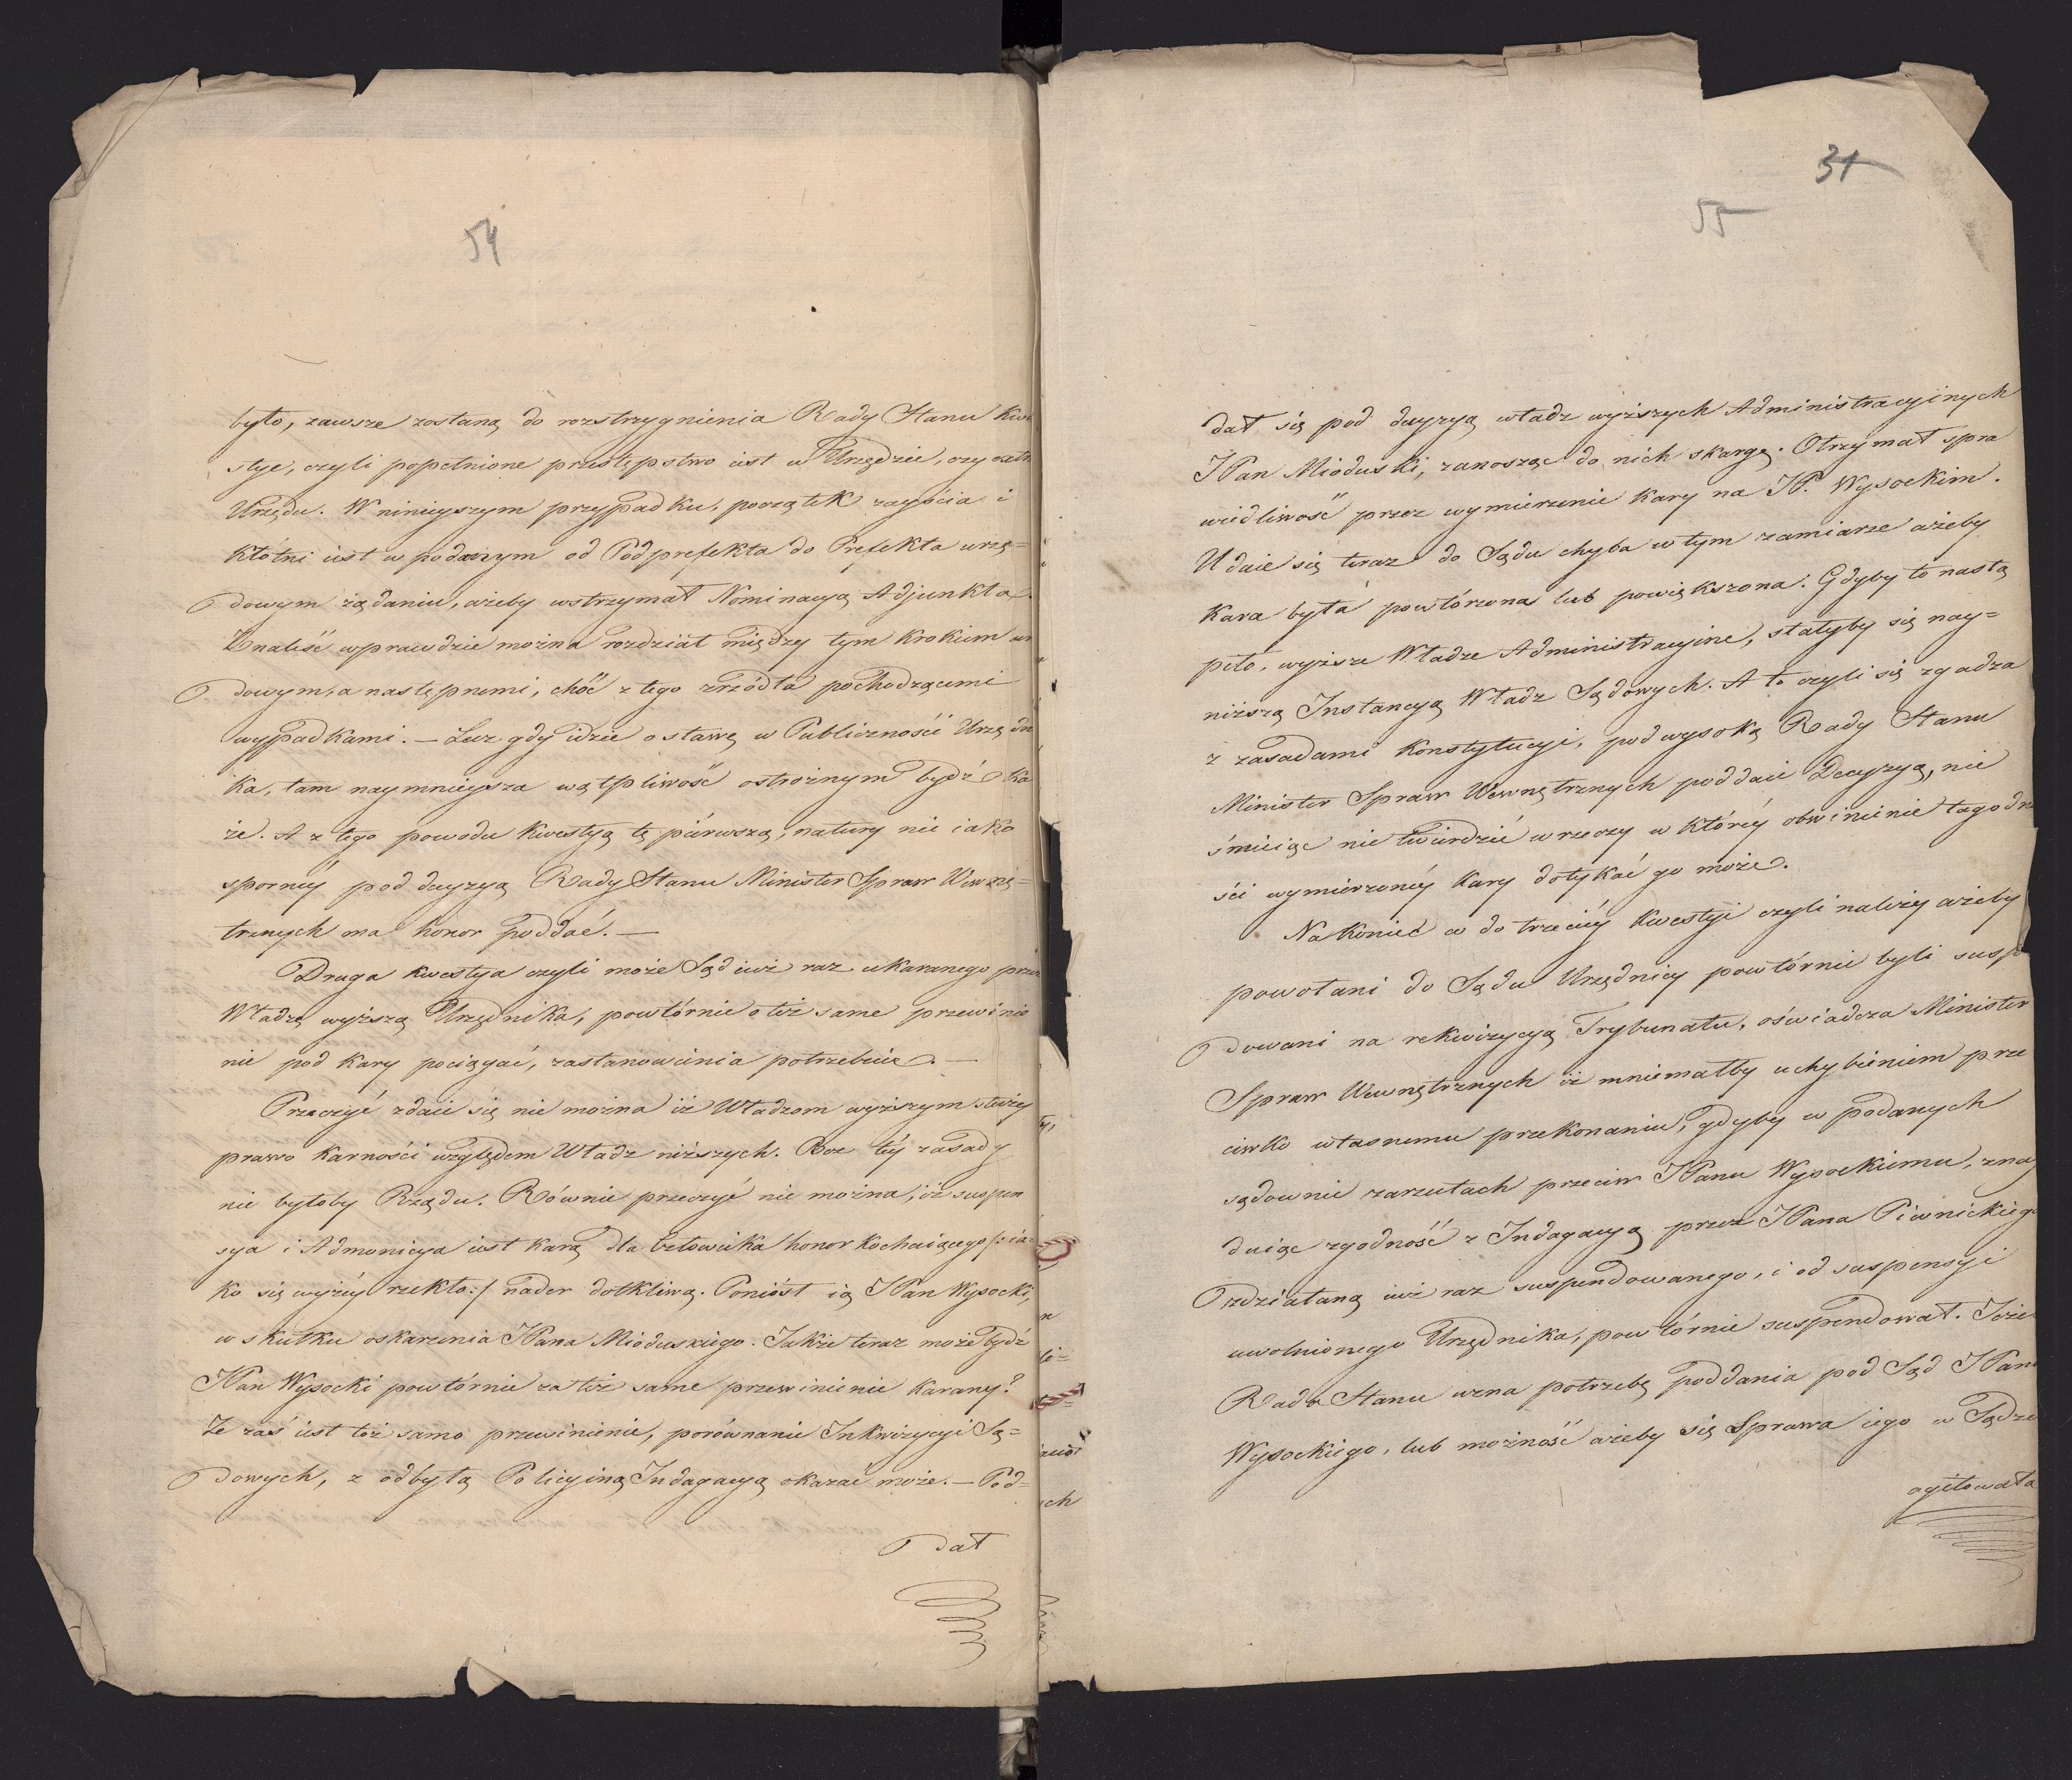 54
było, zawsze zostaną do rozstrzygnienia Rady Stanu Kwe
stye, czyli popełnione przestępstwo iest w Urzędzie, czy oath
Urzędu. W ninieyszym przypadku, początek zayścia i
Kłótni iest w podanym od Podprefekta do Prefekta urzę=
dowym żądaniu, ażeby wstrzymał Nominacyą Adjunkta.
Znaleść wprawdzie można rozdział między tym Krokiem urz
dowym, a następnemi, choć z tego zrzódła pochodzącemi
wypadkami. — Lecz gdy idzie o sławę w Publiczności Urzędni
Ka, tam naymnieysza wątpliwość ostrożnym bydź Ka
że. A z tego powodu Kwestyą tę piérwszą, natury nie iako
spornéy pod decyzyą Rady Stanu Minister Spraw Wewnę=
trznych ma honor poddać. —
Druga Kwestya czyli może Sąd iuż raz ukaranego przez
Władzę wyższą Urzędnika, powtórnie o też same przewinie
nie pod Kary pociągać, zastanowienia potrzebuie. —
Przeczyć zdaie się nie można iż Władzom wyższym służy
prawo Karności względem Władz niższych. Bez téy zasady
nie byłoby Rządu. Równie przeczyć nie można, iż suspen
sya i Admonicya iest Karą dla Człowieka honor Kochaiącego /: ia=
Ko się wyżéy rzekło:/ nader dotkliwą. Poniósł ią JPan Wysocki,
w skutku oskarżenia JPana Mioduskiego. Jakże teraz może bydź
JPan Wysocki powtórnie za też same przewinienie Karany?
Że zaś iest też samo przewinienie, porównanie Inkwizycyi Są=
dowych, z odbytą Policyiną Indagacyą okazać może. — Pod=
dał
31
55
dał się pod decyzyą władz wyższych Administracyinych
JPan Mioduski, zanosząc do nich skargę. Otrzymał spra
wiedliwość przez wymierzenie Kary na JP. Wysockim.
Udaie się teraz do Sądu chyba w tym zamiarze ażeby
Kara była powtórzona lub powiększona. Gdyby to nastą
piło, wyższe Władze Administracyine, stałyby się nay=
niższą Instancyą Władz Sądowych. A to czyli się zgadza
z zasadami Konstytucyi, pod wysoką Rady Stanu
Minister Spraw Wewnętrznych poddaie Decyzyą, nie
śmieiąc nie twierdzić w rzeczy w któréy obwinienie łagodno
ści wymierzonéy Kary dotykać go może.
Nakoniec co do trzeciéy Kwestyi czyli należy ażeby
powołani do Sądu Urzędnicy powtórnie byli suspe
dowani na rekwizycyą Trybunału, oświadcza Minister
Spraw Wewnętrznych iż mniemałby uchybieniem prze
ciwko własnemu przekonaniu, gdyby w podanych
sądownie zarzutach przeciw JPanu Wysockiemu, znay
duiąc zgodność z Indagacyą przez JPana Piwnickiego
zdziałaną iuż raz suspendowanego, i od suspensyi
uwolnionego Urzędnika, powtórnie suspendował. Jeże
Rada Stanu uzna potrzebę poddania pod Sąd JPana
Wysockiego, lub możność ażeby się Sprawa iego w Sądze
agitowała